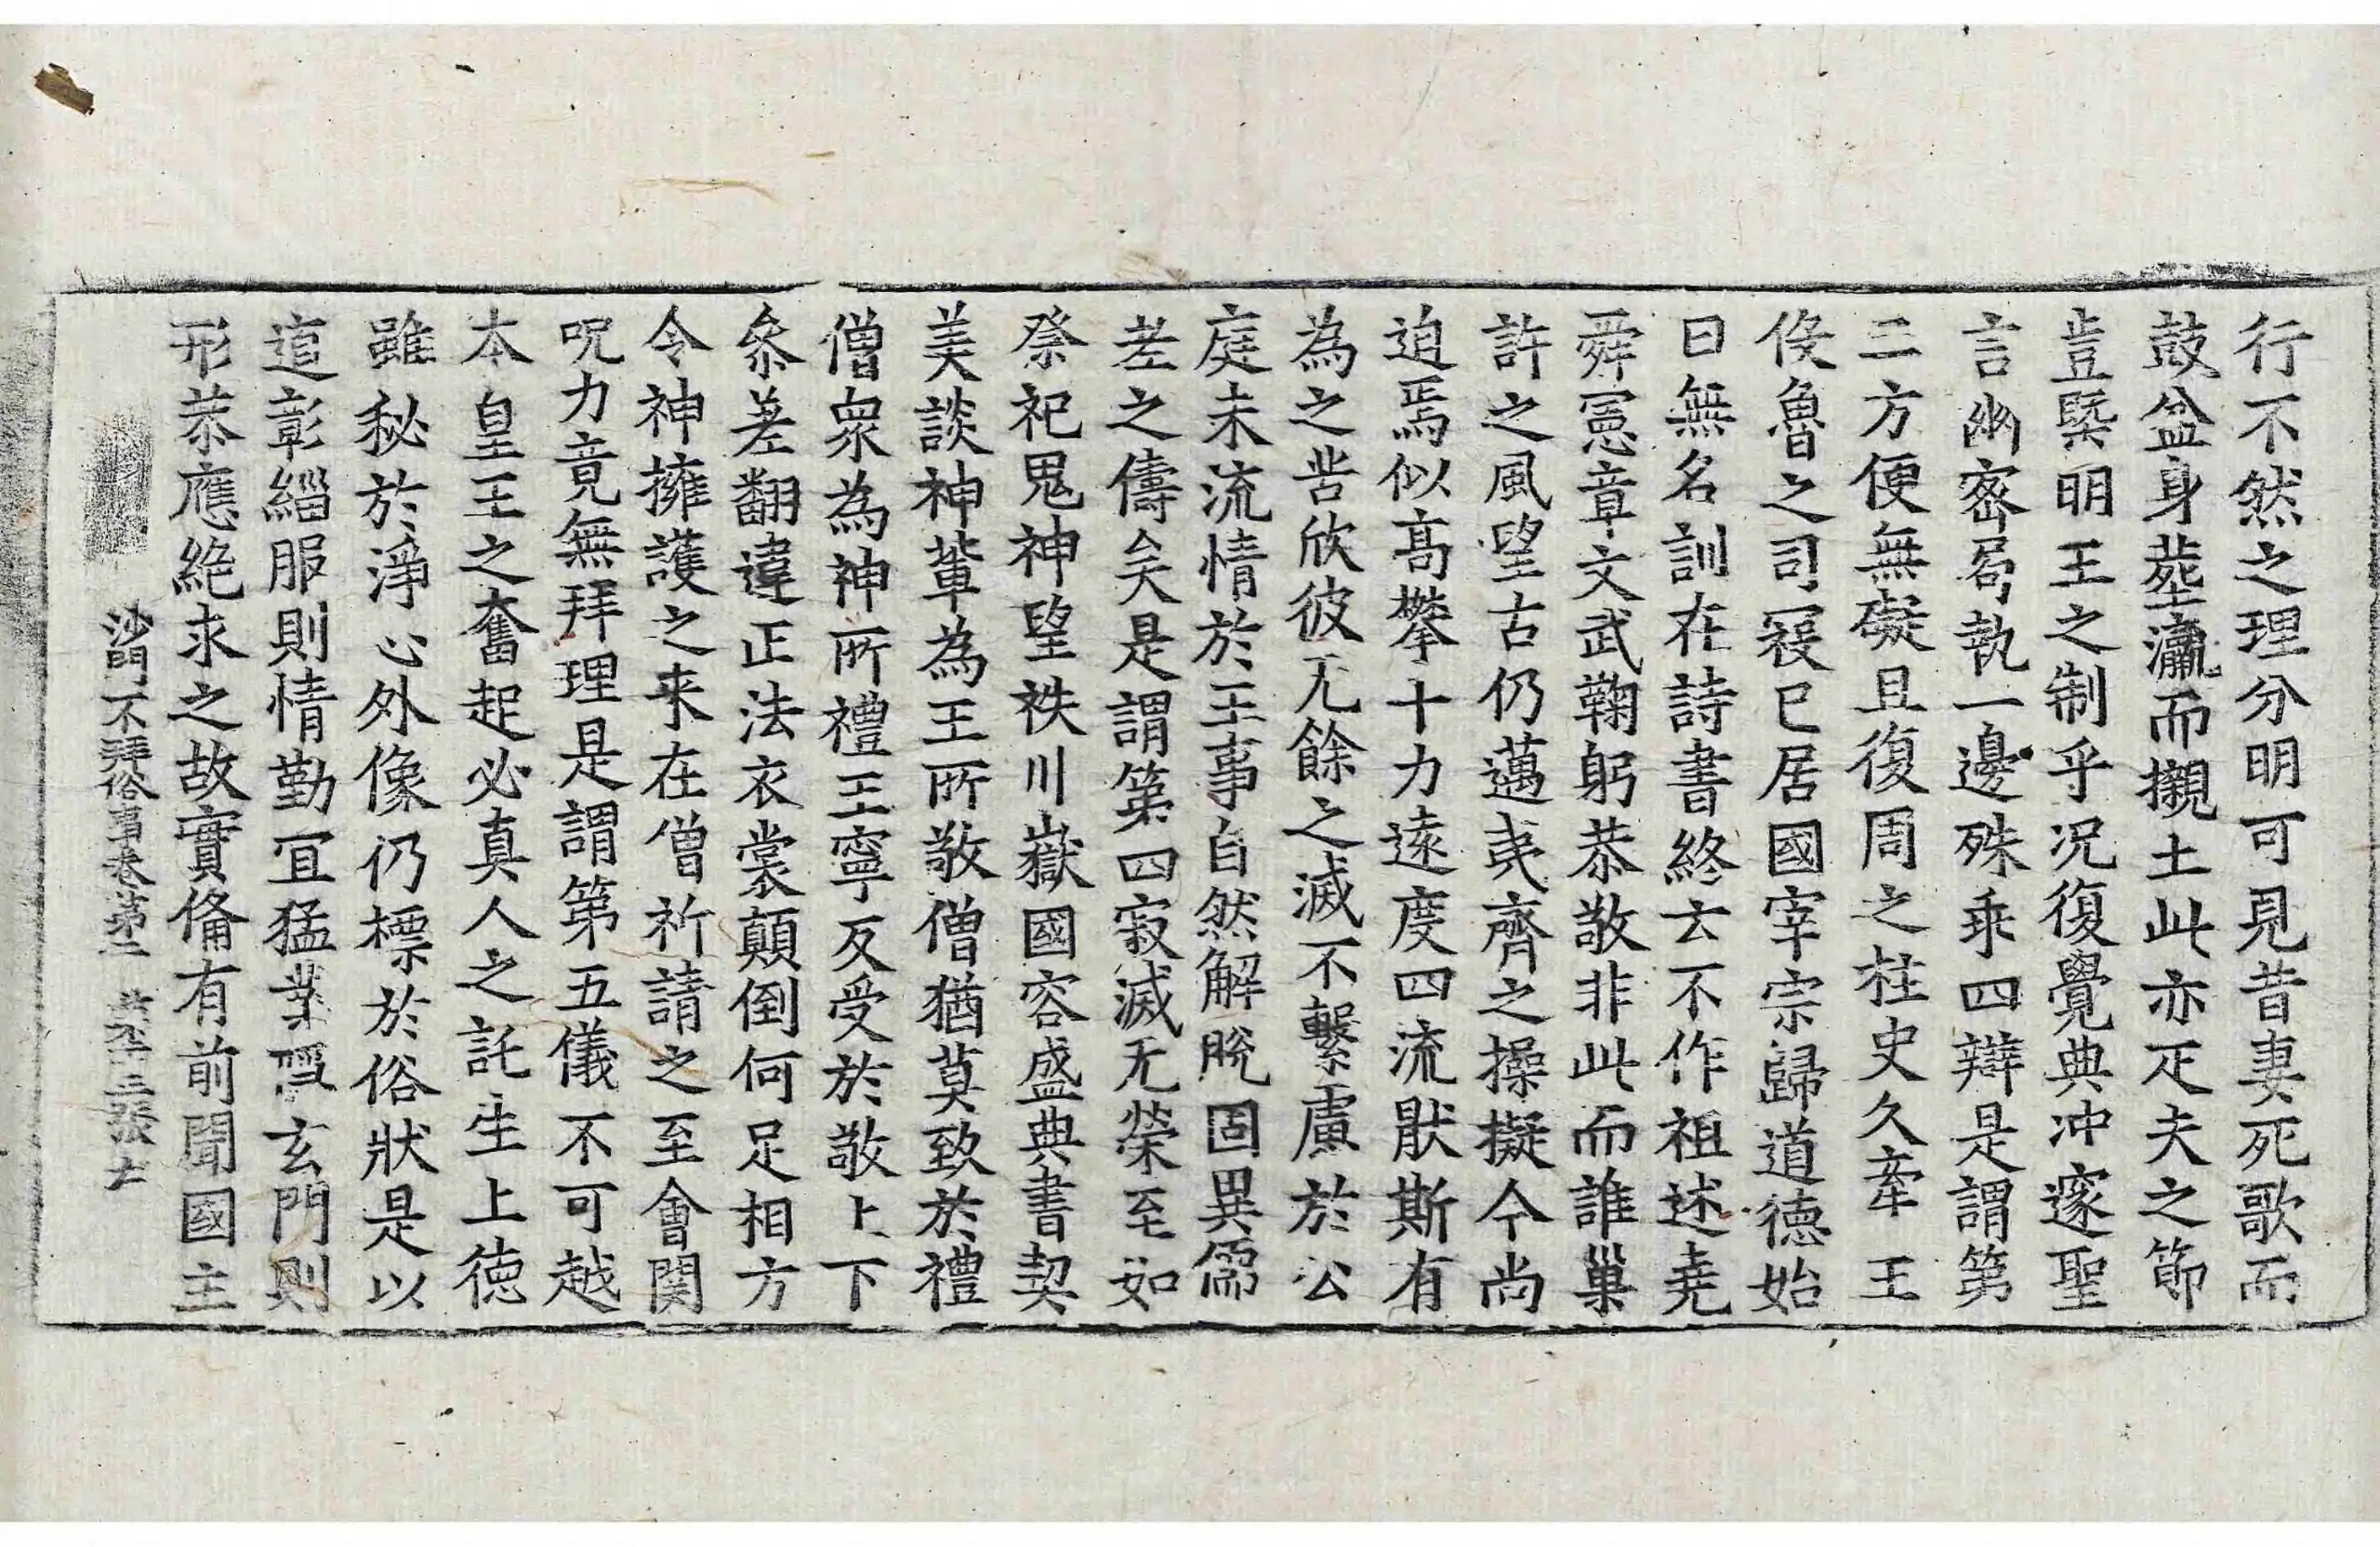 行不然之理分明可見昔妻死歌而
鼓盆身葬瀛而襯土此亦疋夫之節
豈槩明王之制乎況復覺典沖邃聖
言幽密局執一邊殊乖四辯是謂第
二方便無礙且復周之柱史久牽王
伇魯之司寇已居國宰宗歸道德始
曰無名訓在詩書終云不作祖述堯
舜憲章文武鞠躬恭敬非此而誰巢
許之風望古仍邁夷齊之操擬今尚
迫焉似高攀十力遠度四流猒斯有
為之苦欣彼无餘之滅不繫慮於公
庭未流情於王事自然解脫固異儒
者之儔矣是謂第四寂滅无榮至如
祭祀鬼神望袟川嶽國容盛典書契
美談神輩為王所敬僧猶莫致於禮
僧眾為神所禮王寧反受於敬上下
叅差翻違正法衣裳顛倒何足相方
令神擁護之来在僧祈請之至會開
呪力竟無拜理是謂第五儀不可越
本皇王之奮起必真人之託生上德
雖秘於淨心外像仍標於俗狀是以
道彰緇服則情勤冝猛業隱玄門則
形恭應絶求之故實俻有前聞國主
沙門不拜俗事卷第二 張